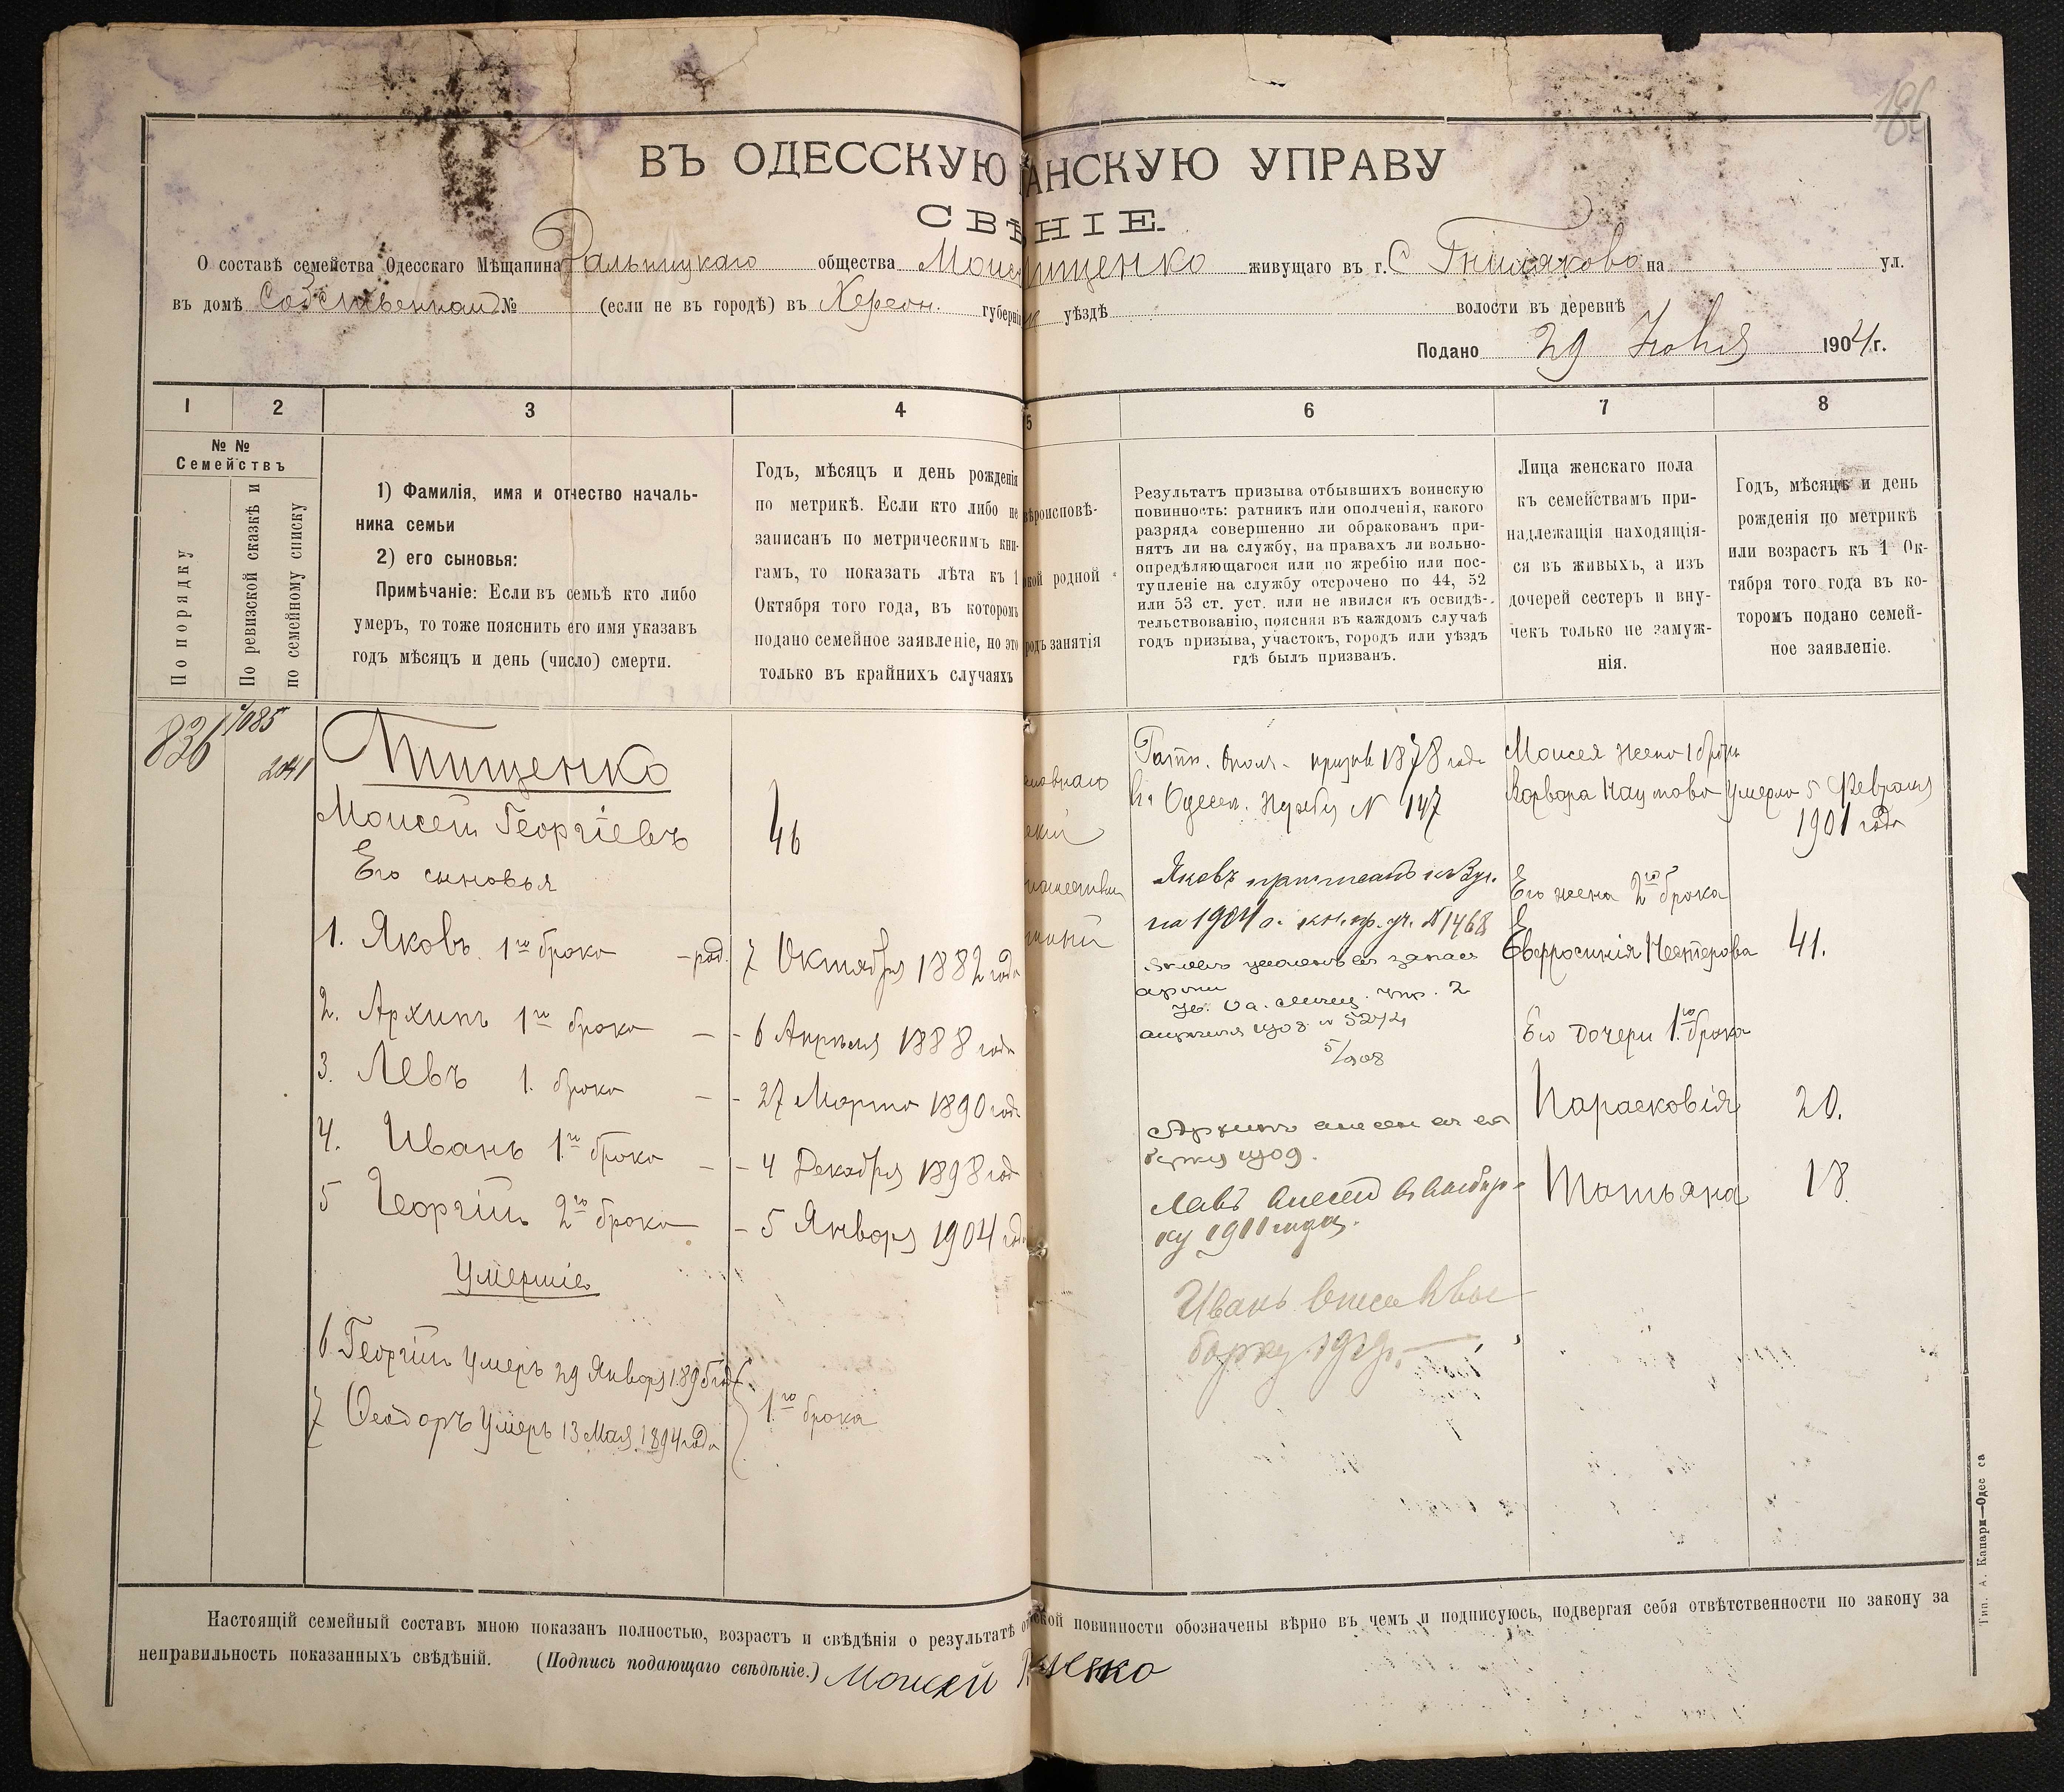 186
ВЪ ОДЕССКУЮ АНСКУЮ УПРАВУ
СВѢНІЕ.
О составѣ семейства Одесскаго Мѣщанина Дальницкаго общества Моис ищенко живущаго въ г. С Гниляково на ул.
въ домѣ Собственном № (если не въ городѣ) въ Херсон. губерніи уѣздѣ волости въ деревнѣ
Подано 29 Ноября 1904 г.
1 2 3 4 5 6 7 8
№ №
Семействъ
По порядку
По ревизской сказкѣ и
по семейному списку
1) Фамилія, имя и отчество началь-
ника семьи
2) его сыновья:
Примѣчаніе: Если въ семьѣ кто либо
умеръ, то тоже пояснить его имя указавъ
годъ мѣсяцъ и день (число) смерти.
Годъ, мѣсяцъ и день рожденія
по метрикѣ. Если кто либо не
записанъ по метрическимъ кни-
гамъ, то показать лѣта къ 1
Октября того года, въ которомъ
подано семейное заявленіе, но это
только въ крайнихъ случаяхъ
вѣроисповѣ-
родной
родъ занятія
Результатъ призыва отбывшихъ воинскую
повинность: ратникъ или ополченія, какого
разряда совершенно ли обракованъ при-
нятъ ли на службу, на правахъ ли вольно-
опредѣляющагося или по жребію или пос-
тупленіе на службу отсрочено по 44, 52
или 53 ст. уст. или не явился къ освидѣ-
тельствованію, поясняя въ каждомъ случаѣ
годъ призыва, участокъ, городъ или уѣздъ
гдѣ былъ призванъ.
Лица женскаго пола
къ семействамъ при-
надлежащія находящія-
ся въ живыхъ, а изъ
дочерей сестеръ и вну-
чекъ только не замуж-
нія.
Годъ, мѣсяцъ и день
рожденія по метрикѣ
или возрастъ къ 1 Ок-
тября того года въ ко-
торомъ подано семей-
ное заявленіе.
836
1085
2041
Тищенко
Моисей Георгіевъ 46
Его сыновья
1. Яковъ. 1го брака - род. 7 Октября 1882 года
2. Архипъ 1го брака - - 6 Апрѣля 1888 года
3. Левъ 1. брака - - 27 Марта 1890 года
4. Иванъ 1го брака - - 4 Декабря 1898 года
5 Георгій 2го брака - 5 Января 1904 года
Умершіе
6 Георгій умеръ 29 Января 1895 года
7 Ѳеодоръ умеръ 13 Мая 1894 года
1го брака
Ратн. Опол. призыв 1878 года
въ Одесск. № 147
Яковъ приписанъ
на 1904 г. пр. уч. № 1468
уволенъ въ запас
арміи
Од. мѣщ. упр. 2
апрѣля 1908 № 5274
5/908
Архипъ внесен въ
1909.
Левъ внесенъ въ выбор-
ку 1911 года.
Иванъ Внесен Въ вы
борку 1919 г.
Моисея жена 1 брака
Варвара Наумова умерла 5 Февраля
1901 года
Его жена 2го брака
Евфросинія Нестерова 41.
Его дочери 1го брака
Парасковія 20.
Татьяна 18.
Настоящій семейный составъ мною показанъ полностью, возрастъ и свѣдѣнія о результатѣ повинности обозначены вѣрно въ чемъ и подписуюсь, подвергая себя отвѣтственности по закону за
неправильность показанныхъ свѣдѣній. (Подпись подающаго свѣдѣніе.) Моисей
Тип. А. Капари—Одесса